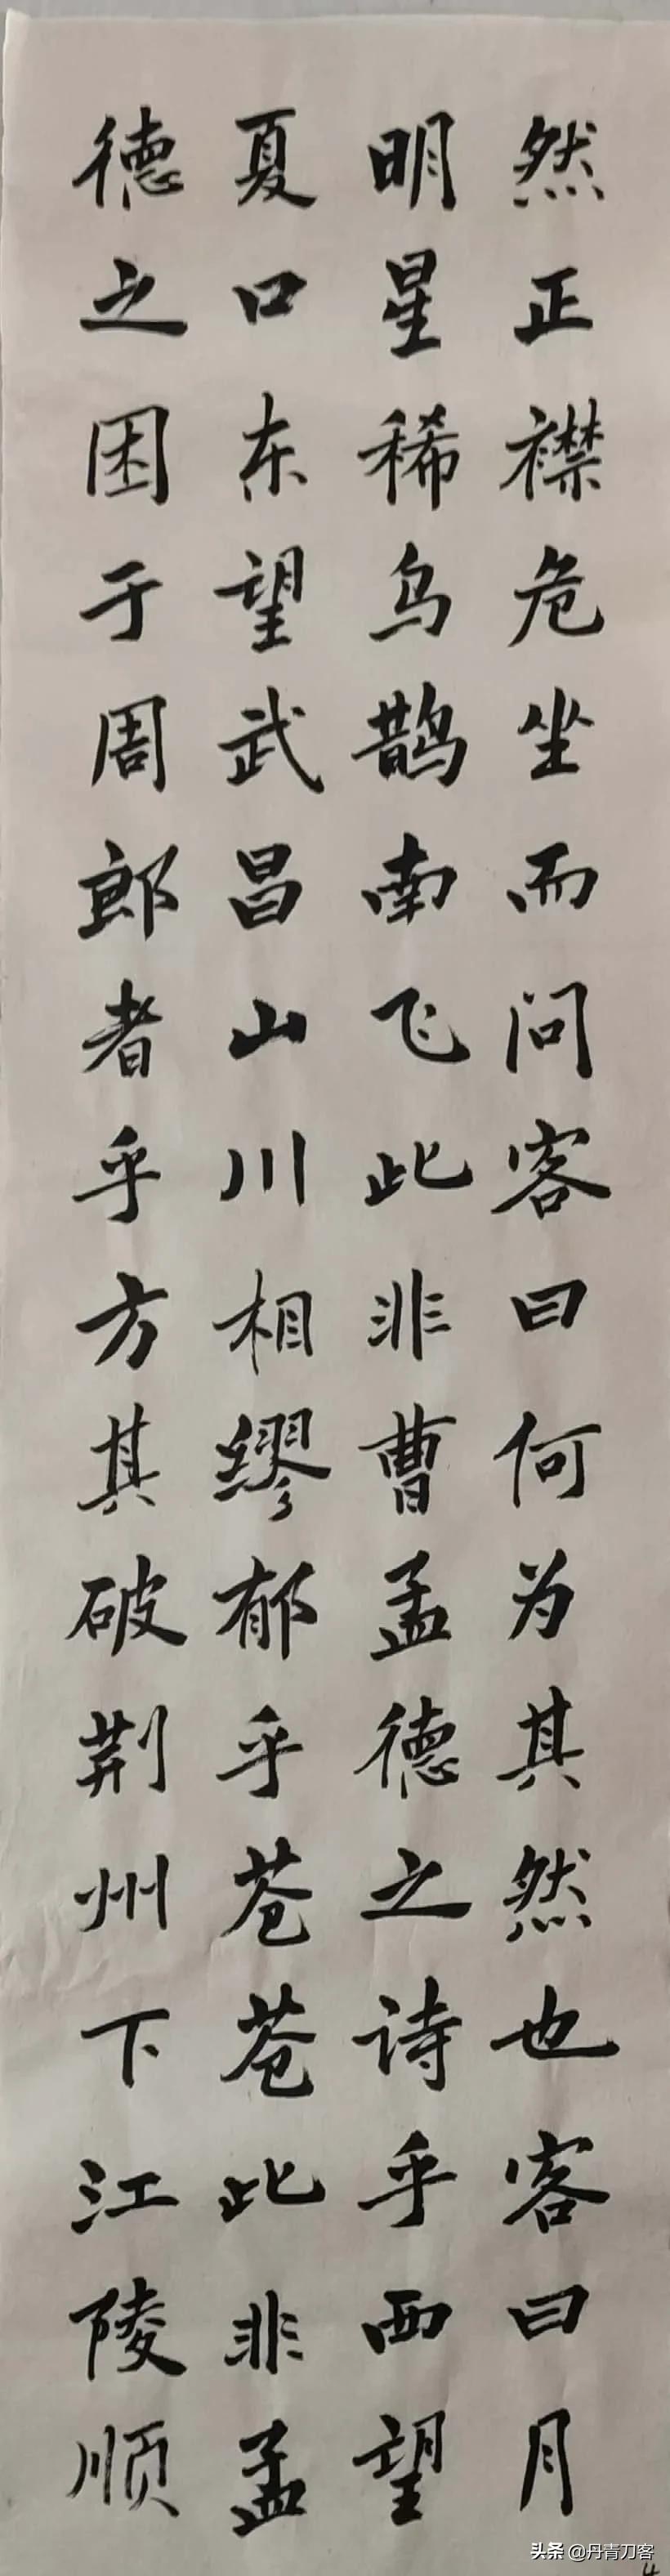 然正襟危坐而问客曰何为其然也客曰月
明星稀乌鹊南飞此非曹孟德之诗乎西望
夏口东望武昌山川相缪郁乎苍苍此非孟
德之困于周郎者乎方其破荆州下江陵顺
头条 @丹青刀客